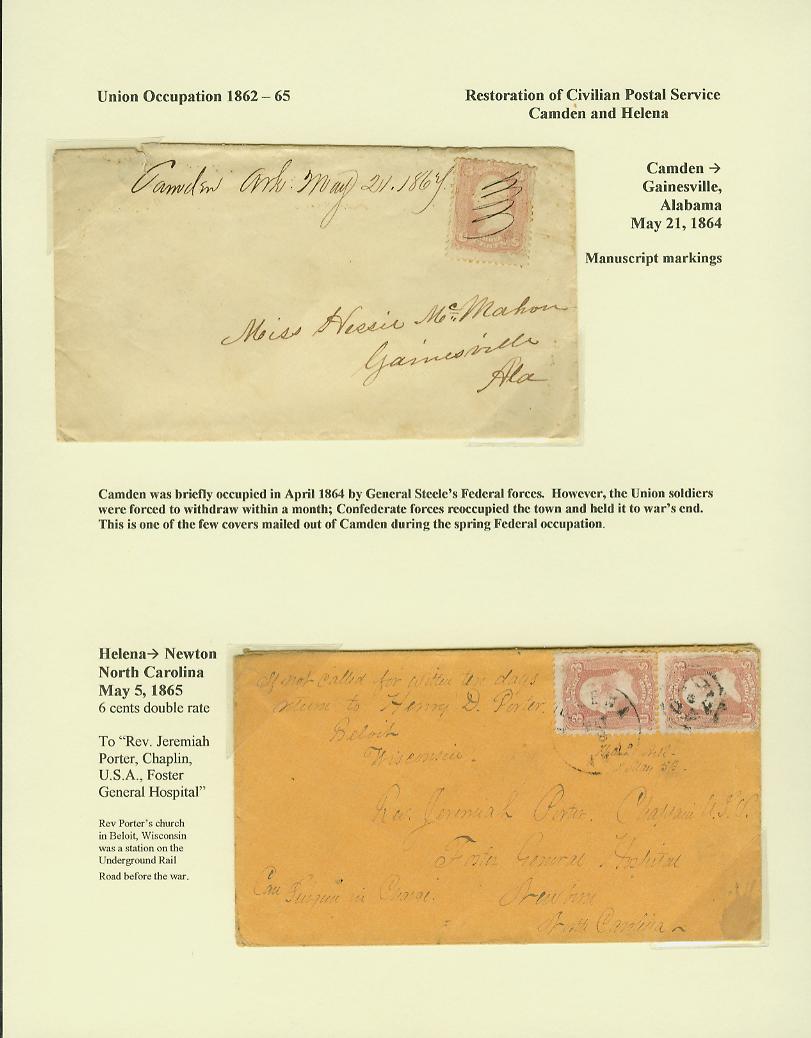 Union Occupation 1862 – 65
Restoration of Civilian Postal Service
Camden and Helena
Camden Ark. May 21. 1864.
Camden →
Gainesville,
Alabama
May 21, 1864
Manuscript markings
Miss Hessie Mc Mahon
Gainesville
Ala
Camden was briefly occupied in April 1864 by General Steele's Federal forces.  However, the Union soldiers
were forced to withdraw within a month; Confederate forces reoccupied the town and held it to war's end.
This is one of the few covers mailed out of Camden during the spring Federal occupation.
Helena→ Newton
North Carolina
May 5, 1865
6 cents double rate
To “Rev. Jeremiah
Porter, Chaplin,
U.S.A., Foster
General Hospital”
Rev Porter's church
in Beloit, Wisconsin
was a station on the
Underground Rail
Road before the war.
If not called for within ten days
return to Henry D. Porter.
Beloit
Wisconsin.
Rev. Jeremiah Porter. Chaplain
Foster General Hospital
Surgeon in Charge.
Newbern
North Carolina